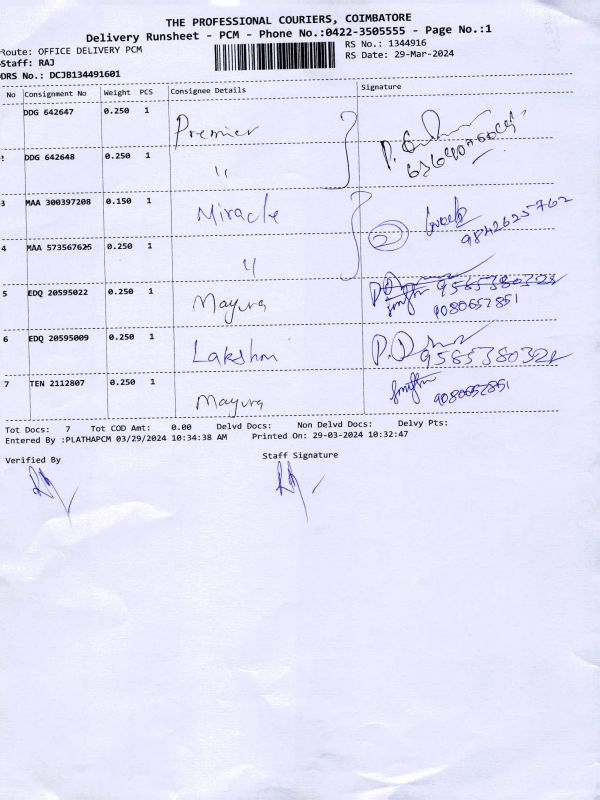 THE PROFESSIONAL COURIERS, COIMBATORE
Delivery Runsheet - PCM - Phone No.:0422-3505555 - Page No.:1
Route: OFFICE DELIVERY PCM
RS No.: 1344916
Staff: RAJ
RS Date: 29-Mar-2024
DRS No.: DCJB134491601
No Consignment No Weight PCS Consignee Details Signature
DDG 642647 0.250 1 Premier
DDG 642648 0.250 1 "
3 MAA 300397208 0.150 1 Miracle 9842625762
4 MAA 573567625 0.250 1 " 2
5 EDQ 20595022 0.250 1 Mayura 9585380322
9080652851
6 EDQ 20595009 0.250 1 Lakshmi 9585380322
7 TEN 2112807 0.250 1 Mayura 9080652851
Tot Docs: 7 Tot COD Amt: 0.00 Delvd Docs: Non Delvd Docs: Delvy Pts:
Entered By :PLATHAPCM 03/29/2024 10:34:38 AM Printed On: 29-03-2024 10:32:47
Verified By Staff Signature